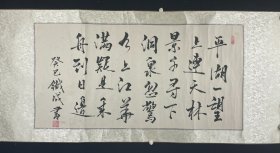 平湖一望
上連天林
景千尋下
洞泉忽驚
水上光華
滿疑是乘
舟到日邊
癸巳鐵成書